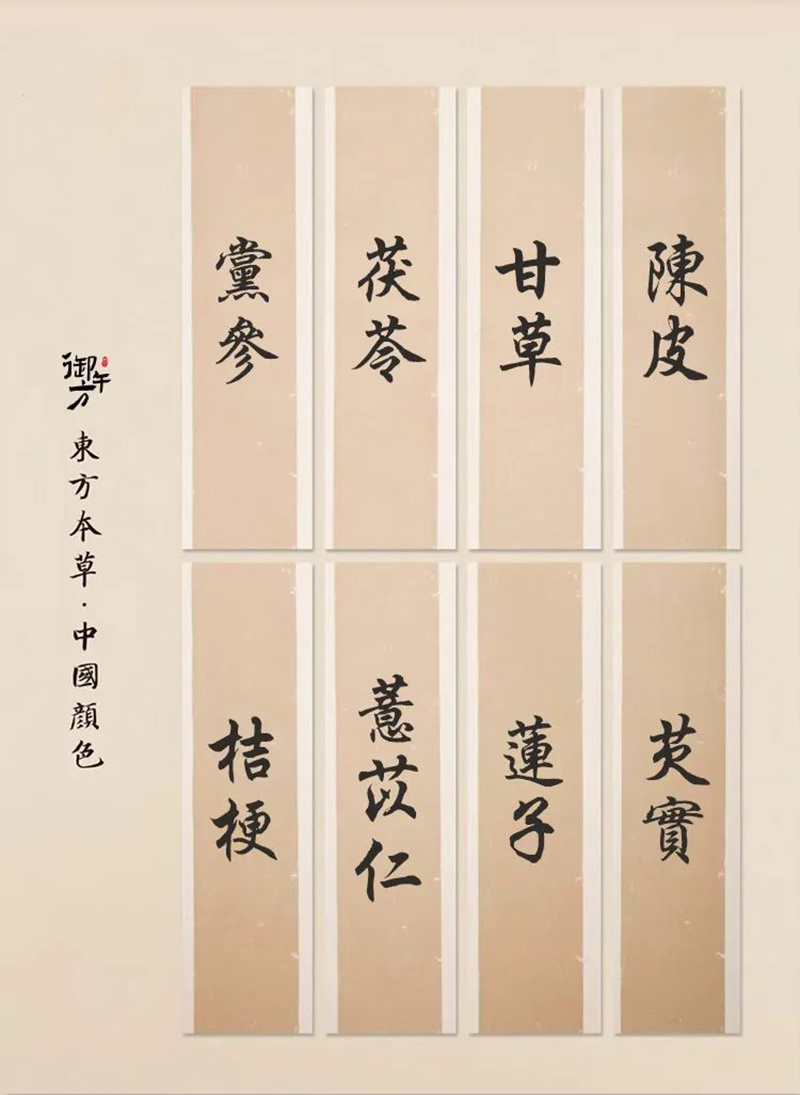 陳皮
甘草
茯苓
黨參
芡實
蓮子
薏苡仁
桔梗
御午方
東方本草·中國顏色